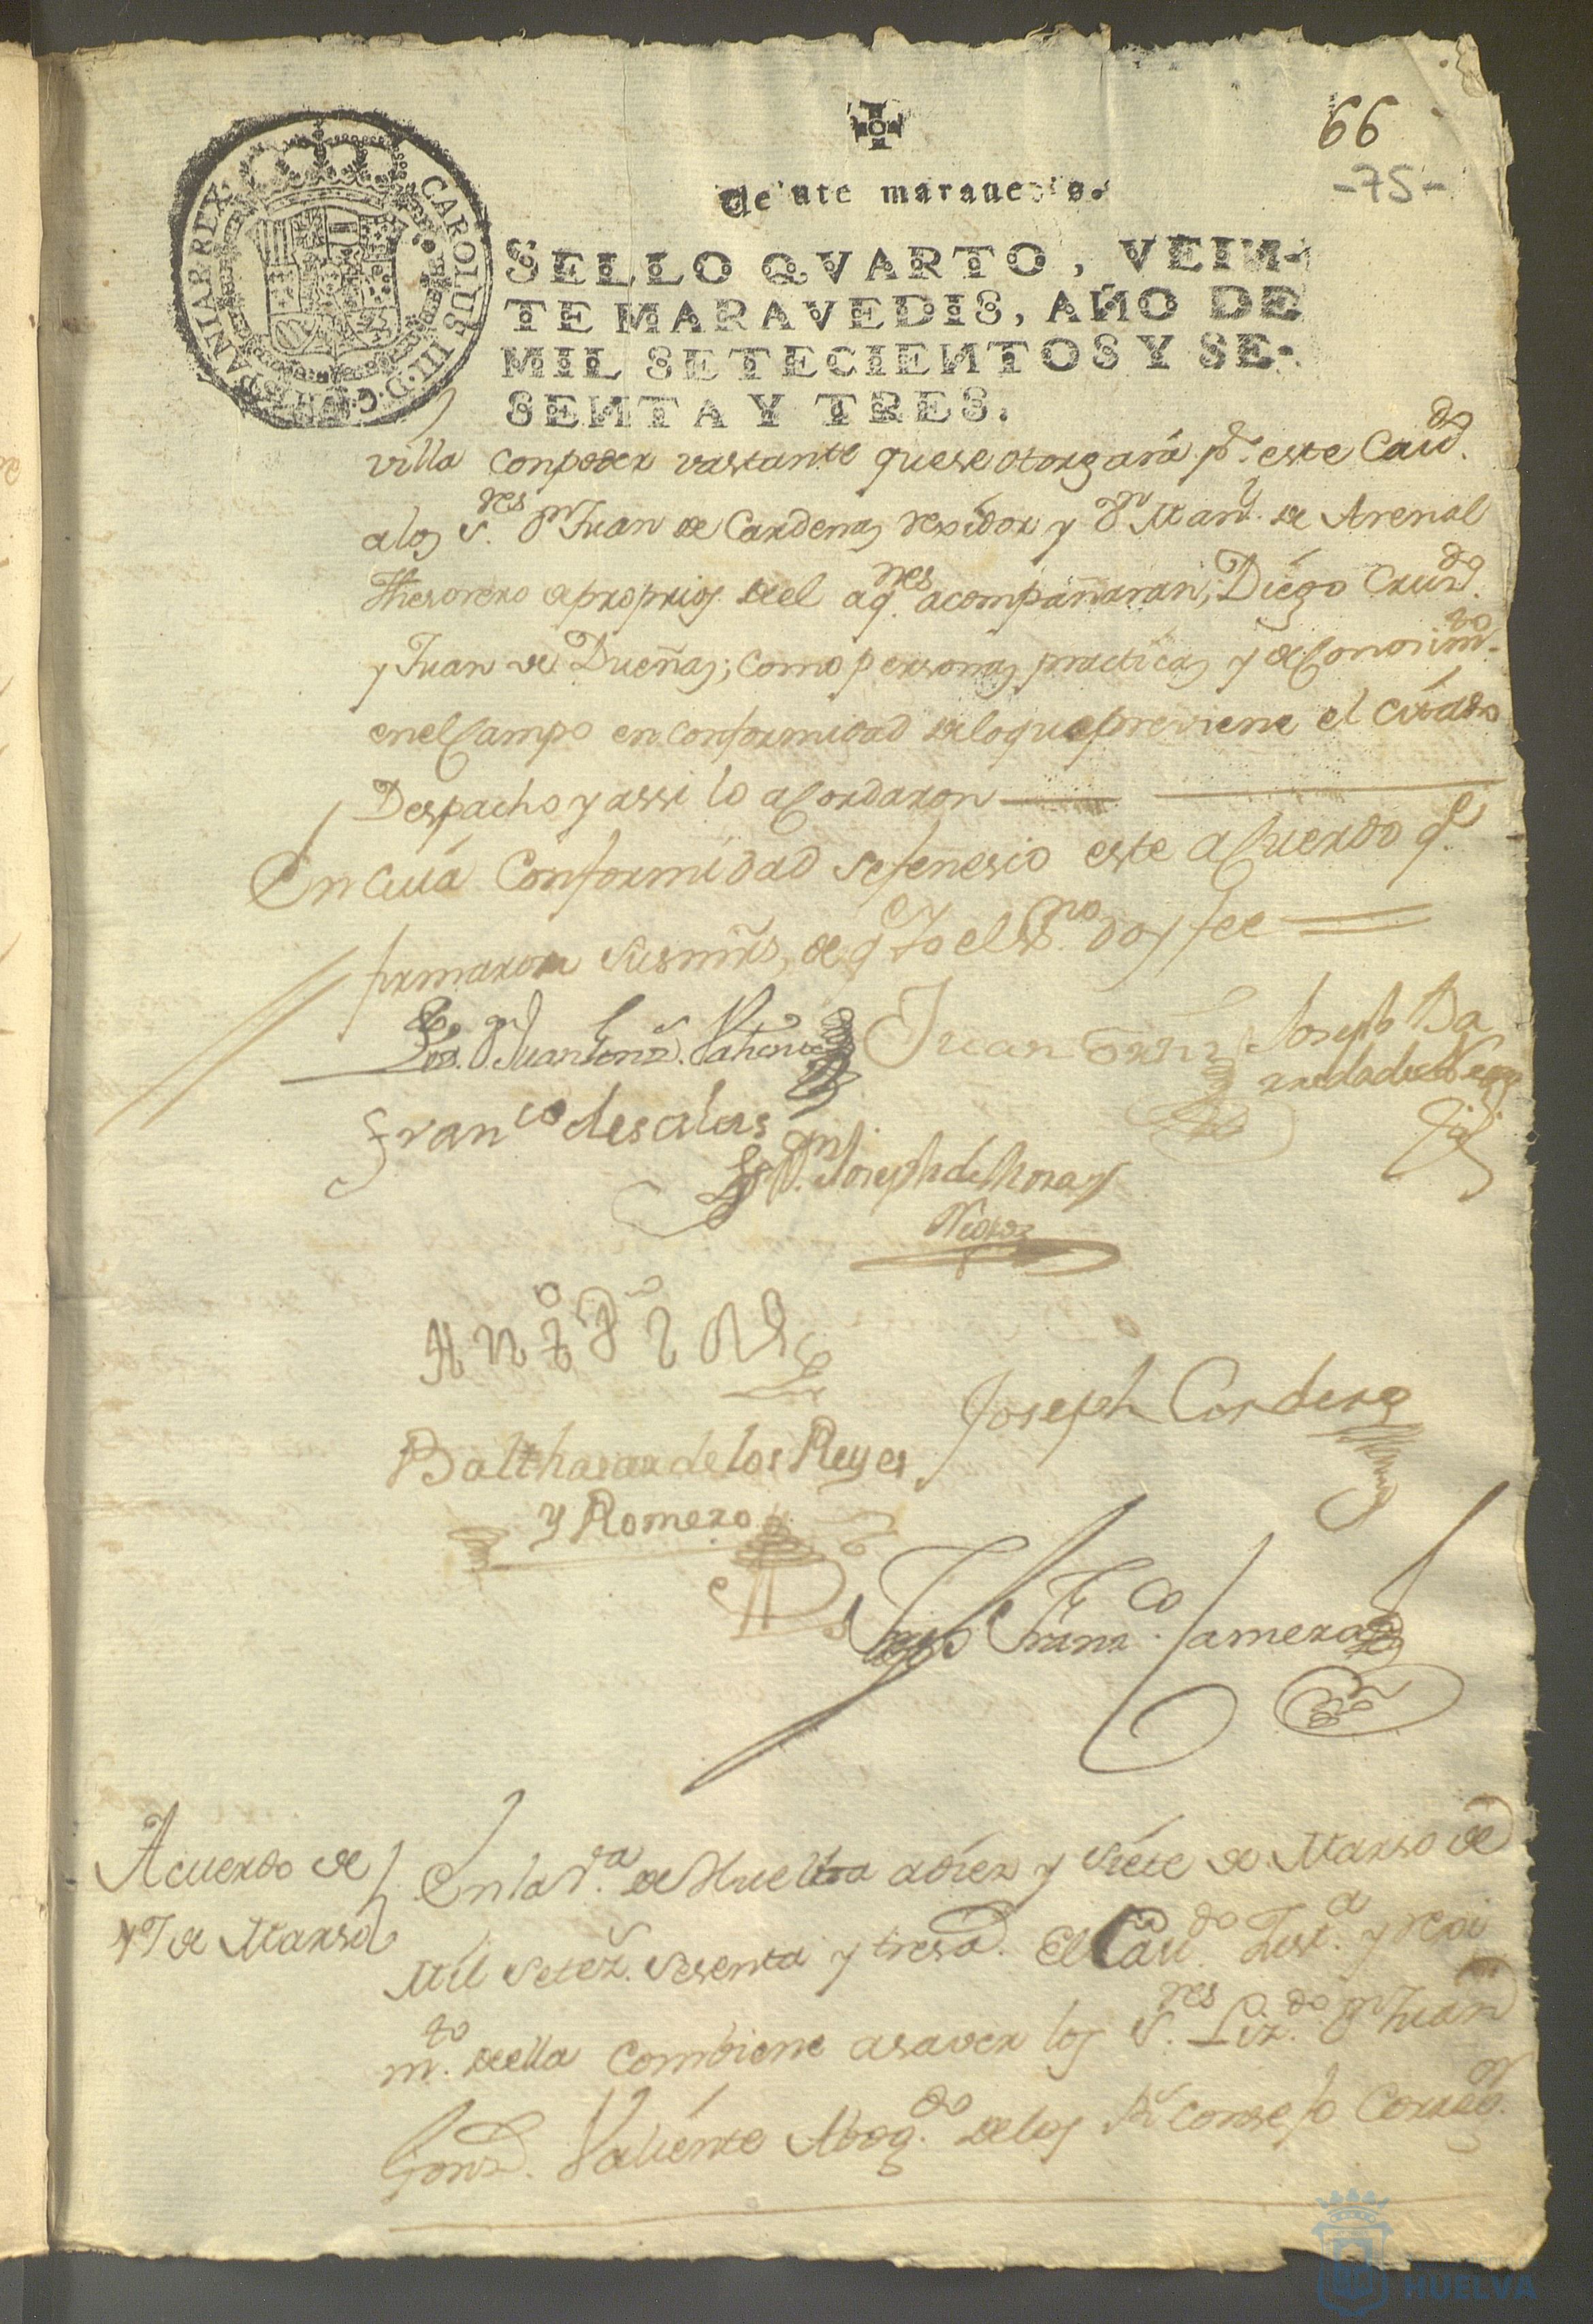 66
-75-
CAROLUS III D.G. HISPANIAR REX
Veinte maravedis.
SELLO QVARTO, VEIN-
TE MARAVEDIS, AÑO DE
MIL SETECIENTOS Y SE-
SENTA Y TRES.
villa con poder vastante que se otorgará pr. este Cavdo.
a los Sres. Dn Juan de Cardenas rexidor y Dn Manl. de Arenal
Thesorero de proprios de el a qnes acompañaran, Diego Cruzdo.
y Juan de Dueñas; como personas practicas y de Conosimto.
en el Campo en conformidad de lo que previene el citado
Despacho y assi lo acordaron
En cuia Conformidad se fenesio este acuerdo qe.
firmaron sus mrds, de qe Yo el Ssno doy fee
Lizdo. Dn Juan Gonz. Valiente
Juan Ortiz
Joseph Ba
rreda de Vega
Franco de salas
Dn. Joseph de Mora y
Negro
Joseph Cordero
Balthasar de los Reyes
y Romero
Joseph Franco. Camera
Acuerdo de
17 de Marso
En la Va. de Huelva a diez y siete de Marso de
Mil setez. sesenta y tres a. El Cavdo. Justa. y rexi
mto. de ella combiene a saver los Sres. Lizdo. Dn Juan
Gonz. Valiente Abogdo. de los Rs consejos Corregor.
HUELVA